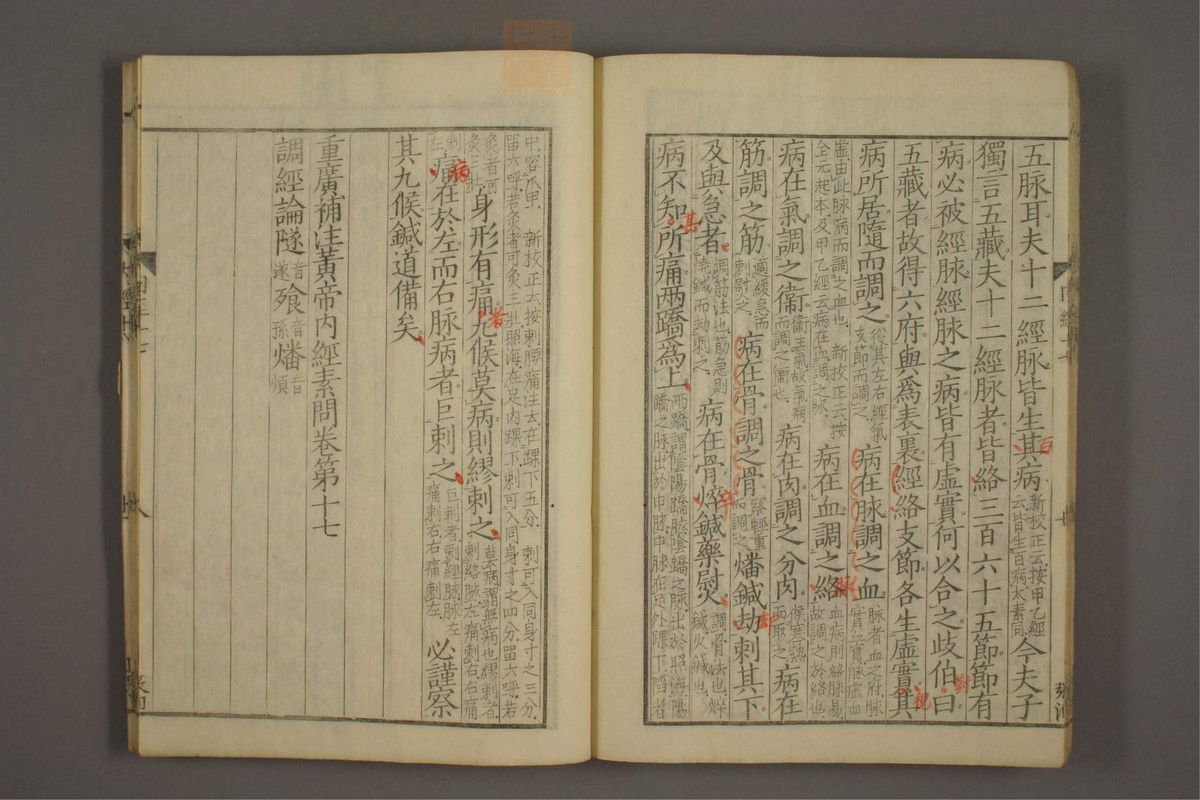 五脉耳夫十二經脉皆生其病新校正云按甲乙經云皆生百病太素同今夫子
獨言五藏夫十二經脉者皆絡三百六十五節節有
病必被經脉經脉之病皆有虛實何以合之歧伯曰
五藏者故得六府與爲表裏經絡支節各生虛實其
病所居隨而調之從其左右經氣支節而調之病在脉調之血脉者血之府脉實血實脉虛血
虛由此脉病而調之血也新校正云按全元起本及甲乙經云病在血調之脉病在血調之絡血病則絡脉易故調之於絡也
病在氣調之衞衞主氣故氣病而調之衞也病在肉調之分肉候寒熱而取之病在
筋調之筋適緩急而刺熨之病在骨調之骨察輕重而調之燔鍼劫刺其下
及與急者調筋法也筋急則燒鍼而劫刺之病在骨焠鍼藥熨調骨法也焠鍼火鍼也
病不知所痛兩蹻爲上兩蹻謂陰陽蹻脉陰蹻之脉出於照海陽蹻之脉出於申脉申脉在足外踝下陷者
中容爪甲新校正云按刺腰痛注云在踝下五分刺可入同身寸之三分
留六呼若灸者可灸三壯照海在足内踝下刺可入同身寸之四分留六呼若
灸者可灸三壯身形有痛九候莫病則繆刺之莫病謂無病也繆刺者刺絡脉左痛刺右右痛
刺左痛在於左而右脉病者巨刺之巨刺者刺經脉脉左痛刺右右痛刺左必謹察
其九候鍼道備矣
重廣補注黃帝内經素問卷第十七
調經論隧音遂飱音孫燔音煩
百
對
視
脉
卒
其
若
病